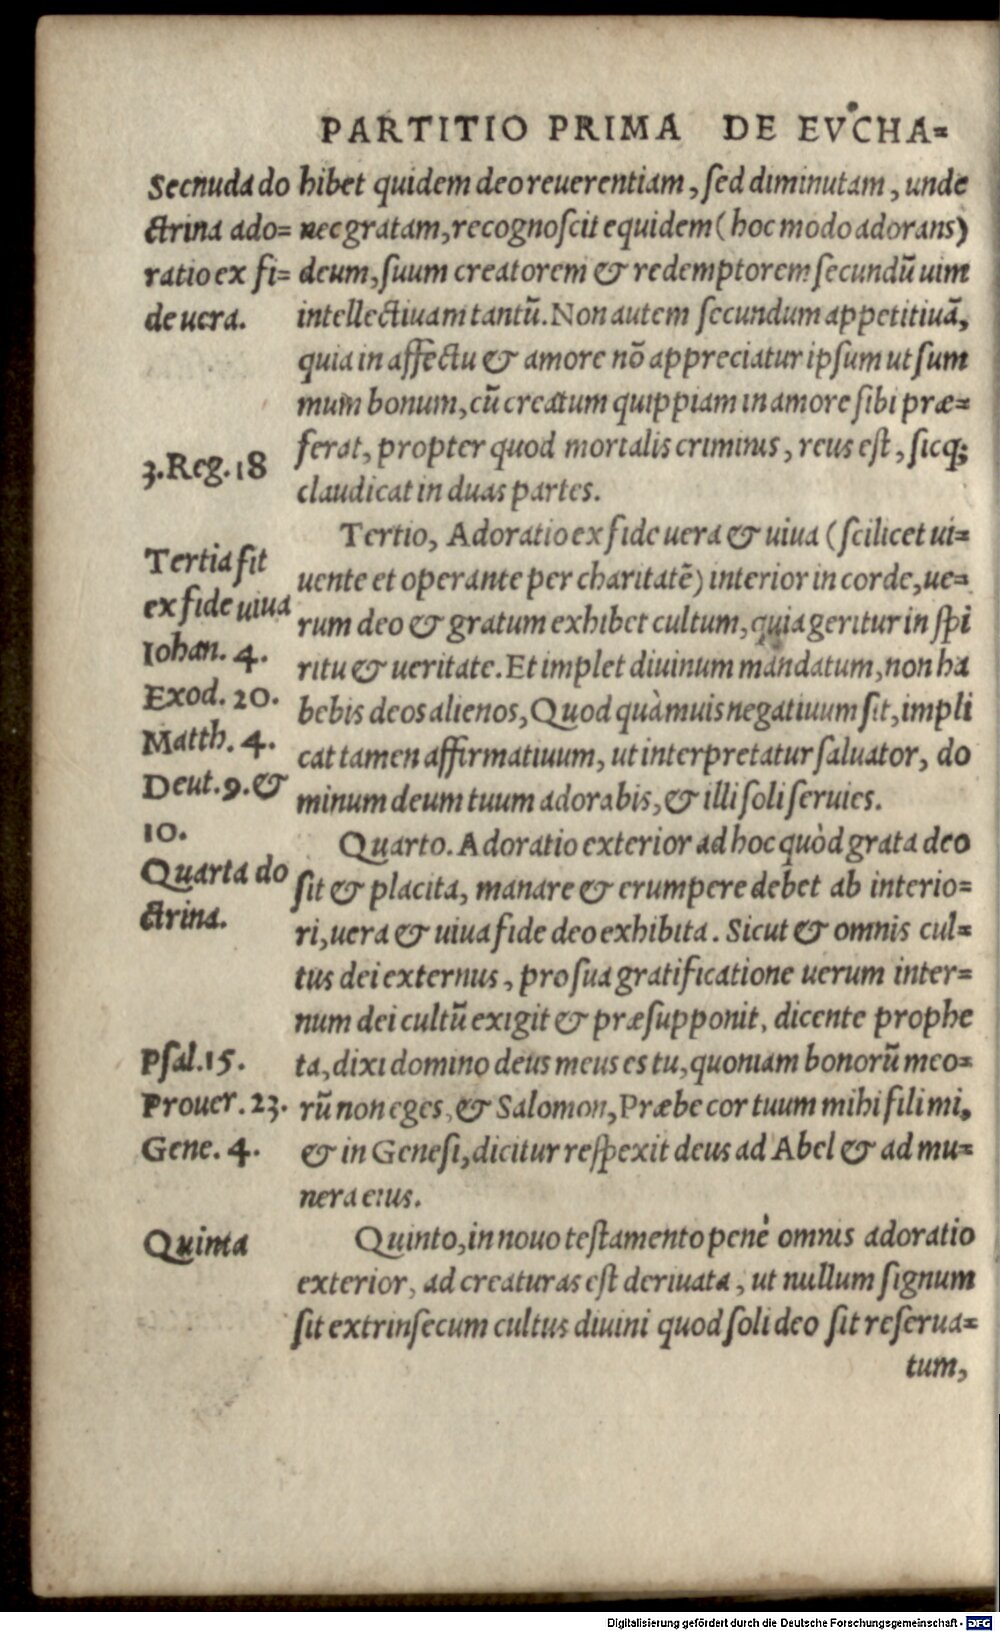 PARTITIO PRIMA DE EVCHA=
Secnuda do
ctrina ado=
ratio ex fi=
de uera.
hibet quidem deo reuerentiam, sed diminutam, unde
nec gratam, recognoscit equidem (hoc modo adorans)
deum, suum creatorem & redemptorem secundũ uim
intellectiuam tantũ. Non autem secundum appetitiuã,
quia in affectu & amore nõ appreciatur ipsum ut sum
mum bonum, cũ creatum quippiam in amore sibi præ=
3.Reg.18
ferat, propter quod mortalis criminis, reus est, sicq;
claudicat in duas partes.
Tertia fit
ex fide uiua
Iohan. 4.
Exod. 20.
Matth. 4.
Deut. 9. &
10.
Tertio, Adoratio ex fide uera & uiua (scilicet ui=
uente et operante per charitatẽ) interior in corde, ue=
rum deo & gratum exhibet cultum, quia geritur in spi
ritu & ueritate. Et implet diuinum mandatum, non ha
bebis deos alienos, Quod quàmuis negatiuum sit, impli
cat tamen affirmatiuum, ut interpretatur saluator, do
minum deum tuum adorabis, & illi soli seruies.
Quarta do
ctrina.
Quarto. Adoratio exterior ad hoc quòd grata deo
sit & placita, manare & erumpere debet ab interio=
ri, uera & uiua fide deo exhibita. Sicut & omnis cul=
tus dei externus, pro sua gratificatione uerum inter=
num dei cultũ exigit & præsupponit, dicente prophe
Psal.15.
Prouer. 23.
Gene. 4.
ta, dixi domino deus meus es tu, quoniam bonorũ meo=
rũ non eges, & Salomon, Præbe cor tuum mihi fili mi,
& in Genesi, dicitur respexit deus ad Abel & ad mu=
nera eius.
Quinta
Quinto, in nouo testamento penè omnis adoratio
exterior, ad creaturas est deriuata, ut nullum signum
sit extrinsecum cultus diuini quod soli deo sit reserua=
tum,
Digitalisierung gefördert durch die Deutsche Forschungsgemeinschaft - DFG